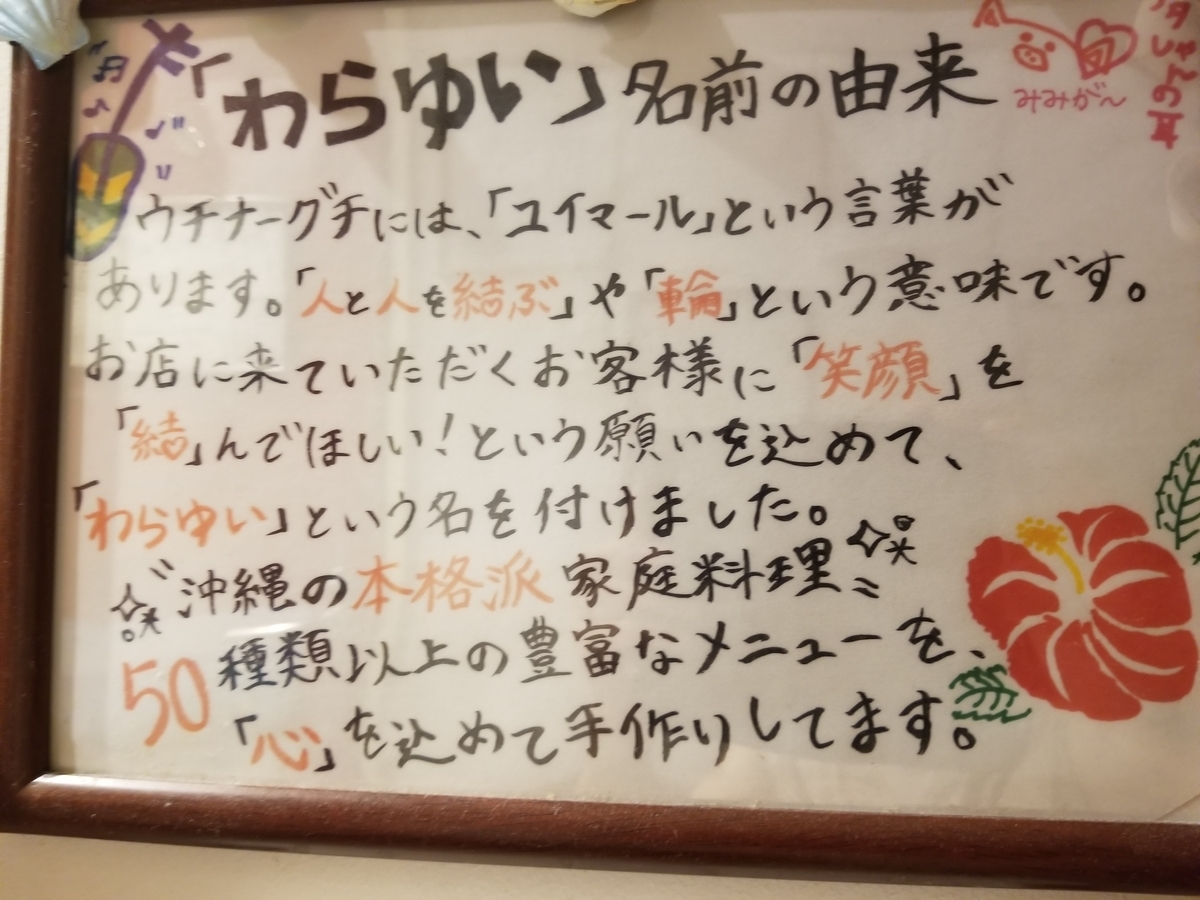 「わらゆい」名前の由来
みみがー
ウチナーグチには、「ユイマール」という言葉が
あります。「人と人を結ぶ」や「輪」という意味です。
お店に来ていただくお客様に「笑顔」を
「結」んでほしい！という願いを込めて、
「わらゆい」という名を付けました。
沖縄の本格派家庭料理
50種類以上の豊富なメニューを、
「心」を込めて手作りしてます。